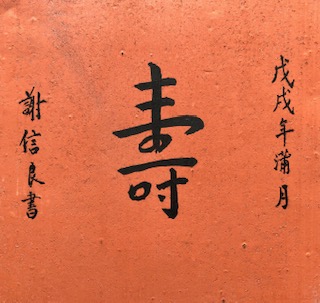 戊戌年滿月
壽
謝信良書